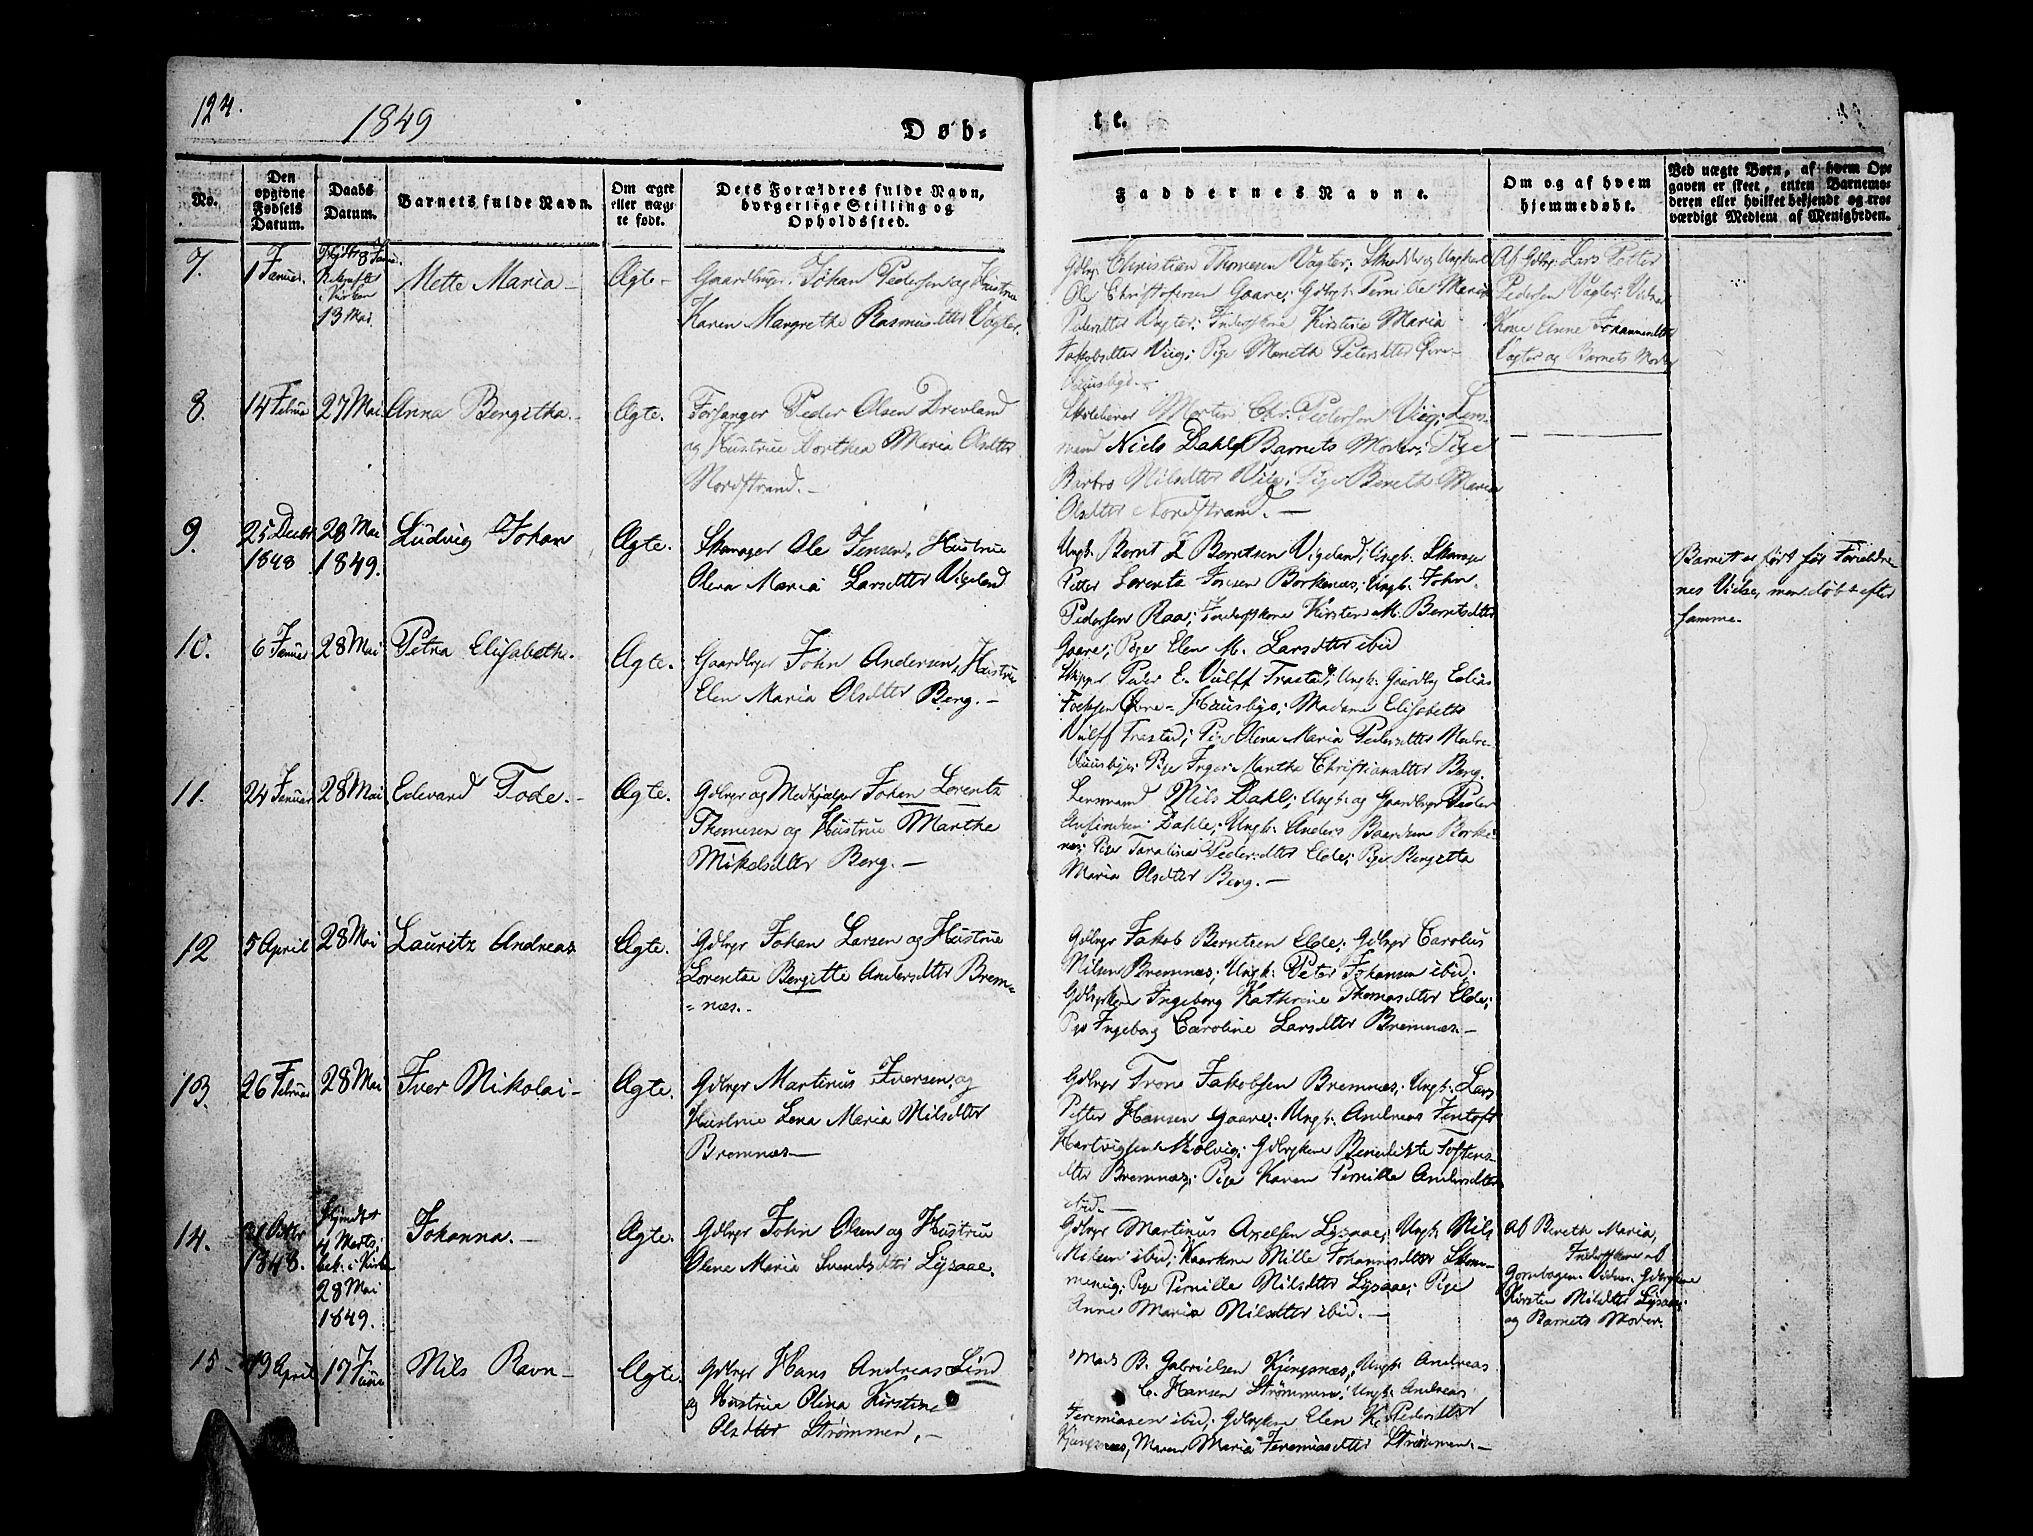 124.
1849
Døb-
te.
No.
Den opgivne Fødsels Datum.
Daabs Datum.
Barnets fulde Navn.
Om ægte eller uægte født.
Dets Forældres fulde Navn, borgerlige Stilling og Opholdssted.
Faddernes Navne.
Om og af hvem hjemmedøbt.
Ved uægte Børn, af hvem Opgaven er skeet, enten Barnemoderen eller hvilket bekjendt og troværdigt Medlem af Menigheden.
7.
1 Januer.
8 Janu.
i Kirken
13 Mai.
Mette Maria
Ægte
Gaardbruger Johan Pedersen og Hustrue
Karen Margrethe Rasmusdtter Vagter.
Christian Thomesen Vagter;
Ole Christofersen Gaare; Gdbrgk. Pernille Maria
Pedersdtter Vagter; Inderstkone Kirstine Maria
Jakobsdtter Viig; Pige Mereth Petersdtter Øvre-
Hausbye.
Af Gdbrgr Lars Petter
Pedersen Vagter; Vidner
Kone Anne Johannesdtter
Vagter og Barnets Moder
8.
14 Februar
27 Mai
Anna Bergitha.
Ægte.
Forsanger Peder Olsen Drevland
og Hustrue Dorthea Maria Olsdtter
Nordstrand.
Skoleholder Morten Chr. Pedersen Viig; Lens-
mand Niels Dahl; Barnets Moder; Pige
Barbro Nilsdtter Viig; Pige Bereth Maria
Olsdtter Nordstrand.
9.
25 Decbr
1848
28 Mai
1849.
Ludvig Johan
Ægte.
Skomager Ole Jensen, Hustrue
Olena Maria Larsdtter Vigeland
Ungk. Bernt L Berntsen Vigeland; Ungk. Skomager
Petter Lorentz Jensen Borkenæs; Ungk. John
Pedersen Raa; Inderstkone Kirsten M. Berntsdtter
Gaare; Pige Elen M. Larsdtter ibid
Barnet er født før Forældre-
nes Vielse, men døbt efter
samme.
10.
6 Januar
28 Mai
Petra Elisabetha.
Ægte.
Gaardbrger John Andersen, Hustrue
Elen Maria Olsdtter Berg.
Skipper Peder E. Vulff Trastad; Ungk. Gaardbrg Edias
Øvre-Hausbye; Madame Elisabeth
Vulff Trastad; Pige Olena Maria Pedersdtter Nedre-
Hausbye; Pige Inger Marthe Christiansdtter Berg.
11.
24 Januar
28 Mai
Edevard Tode.
Ægte.
Gdbrgr og Medhjælper Johan Lorentz
Thomesen og Hustrue Marthe
Mikelsdtter Berg.
Lensmand Nils Dahl; Ungk. og Gaardbrgr Peder
Dahle; Ungk. Anders Baardsen Borke-
næs; Pige Taraline Pedersdtter Elde; Pige Bergitta
Maria Olsdtter Berg.
12
5 April
28 Mai
Lauritz Andreas
Ægte.
Gdbrgr Johan Larsen og Hustrue
Lorentse Bergitte Andersdtter Brem-
=næs.
Gdbrgr Jakob Berntsen Elde; Gdbrgr Carolus
Nilsen Bremnæs; Ungk. Peter Johansen ibid;
Gdbrgkone Ingeborg Kathrine Thomasdtter Elde;
Pige Ingeborg Caroline Larsdtter Bremnæs.
13.
26 Februar
28 Mai
Iver Nikolai
Ægte.
Gdbrgr Martinus Iversen, og
Hustrue Lena Maria Nilsdtter
Bremnæs
Gdbrgr Trone Jakobsen Bremnæs; Ungk. Lars
Petter Hansen Gaare; Ungk. Andreas Jentoft
Hartvigsen Molvig; Gdbrgkone Benedikte Toftens-
dtter Bremnæs; Pige Karen Pernille Andersdtter
ibid.
14.
21 Octbr
1848.
4 Marts
bek. i Kirken
28 Mai
1849.
Johanna.
Ægte.
Gdbrgr John Olsen og Hustrue
Olena Maria Svendsdtter Lysaae.
Gdbrgr Martinus Axelsen Lysaae; Ungk Nils
Nilsen ibid; Kaarkone Nille Johannesdtter
Pige Pernille Nilsdtter Lysaae; Pige
Anne Maria Nilsdtter ibid.
Af Bereth Maria,
Inderstkone af
Vidner: Gdbrgkone
Kirsten Nilsdtter Lysaae
og Barnets Moder.
15
19 April
17 Juni
Nils Ravn
Ægte.
Gdbrgr Hans Andreas Lind
og Hustrue Olina Kirstine
Olsdtter Strømmen.
Mads B. Gabrielsen Kjengsnæs; Ungk. Andreas
C. Hansen Strømmen; Ungk. Andreas
Jeremiasen ibid; Gdbrgkone Elen K. Pedersdtter
Kjengsnæs; Maren Maria Jeremiasdtter Strømmen.